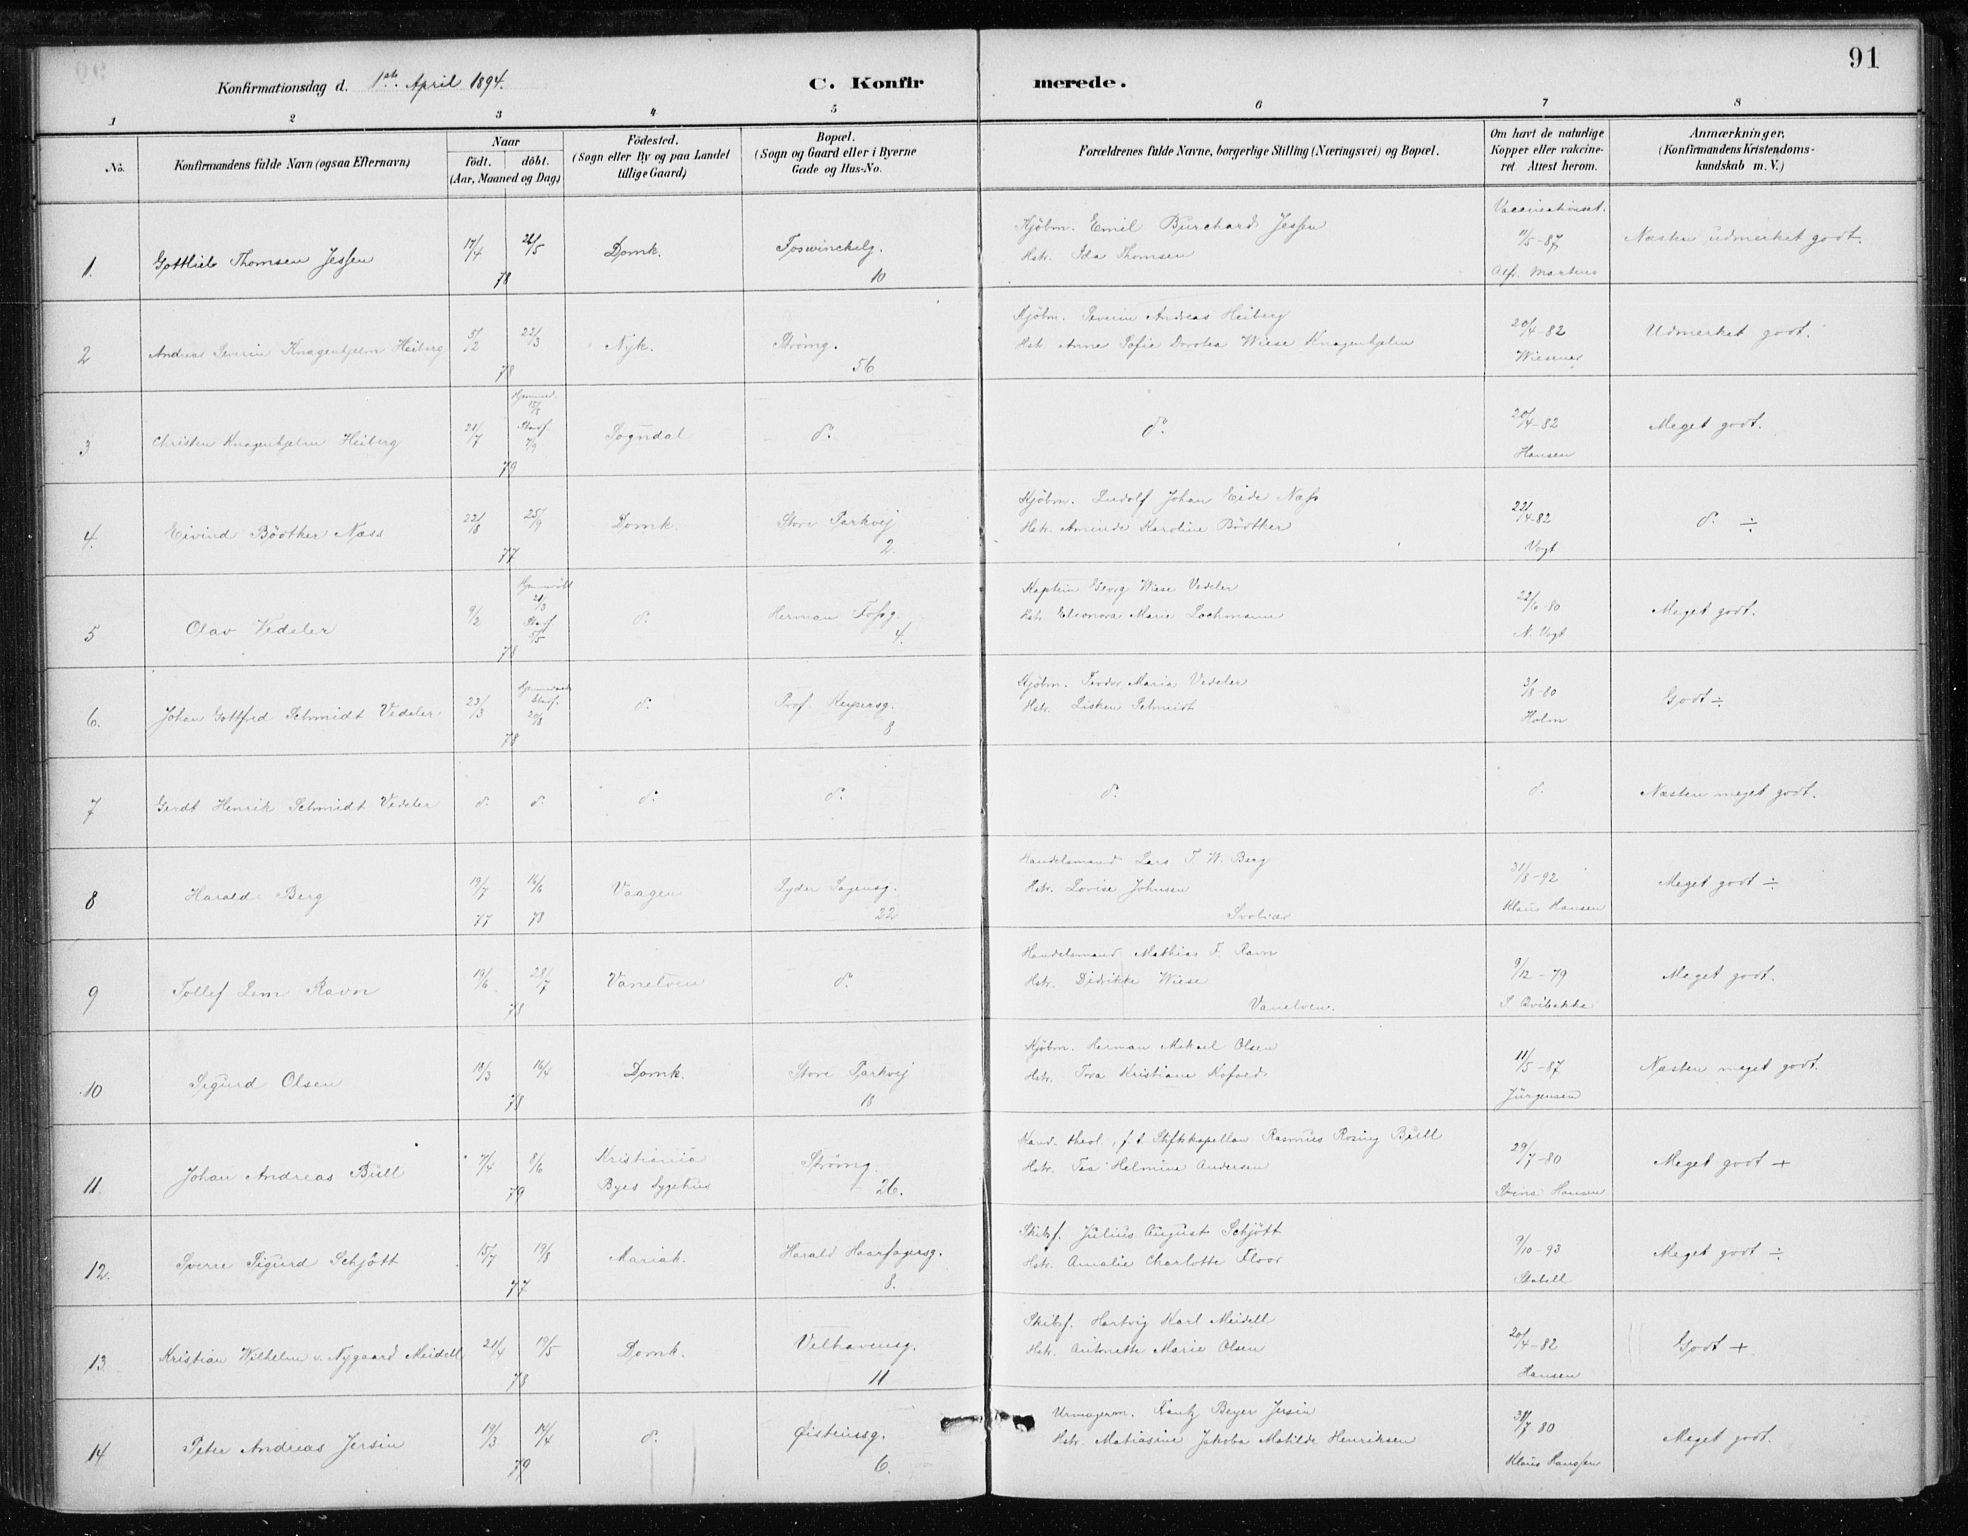 91
Konfirmationsdag d. 1ste April 1894.
C. Konfirmerede.
1 2 3 4 5 6 7 8
No.
Konfirmandens fulde Navn (ogsaa Efternavn)
Naar
födt. döbt.
(Aar, Maaned og Dag)
Födested.
(Sogn eller By og paa Landet
tillige Gaard)
Bopæl.
(Sogn og Gaard eller i Byerne
Gade og Hus-No.
Forældrenes fulde Navne, borgerlige Stilling (Næringsvei) og Bopæl.
Om havt de naturlige
Kopper eller vakcine-
ret Attest herom.
Anmærkninger,
(Konfirmandens Kristendoms-
kundskab m. V.)
1. Gottlieb Thomsen Jessen 17/4 26/5 78 Domk. Foswinckelg. 10
Kjöbm. Emil Burchard Jessen
Hstr. Ida Thomsen
Vaccinationsat. 11/5-87 Alfr. Martens
Næsten udmerket godt.
2 Andreas Severin Knagenhjelm Heiberg 5/2 22/3 78 Nyk. Strömg. 56
Kjöbm. Severin Andreas Heiberg
Hstr. Anne Sofie Dorotea Wiese Knagenhjelm
20/4-82 Wiesener
Udmerket godt.
3 Christen Knagenhjelm Heiberg 21/7 Hjemmed. 15/8 Stadf. 7/9 79 Sogndal do. do.
20/4-82 Hansen
Meget godt.
4. Eivind Bödtker Næss 22/8 25/9 77 Domk. Store Parkvej 2.
Kjöbm. Ludolf Johan Eide Næss
Hstr. Aminda Karoline Bödtker
22/4-82 Vogt
do. ÷
5 Olav Vedeler 9/2 Hjemmedöbt 21/3 Stadf 5/5 78 do. Herman Fossg. 4.
Kaptein Georg Wiese Vedeler
Hstr. Eleonora Marie Lochmann
22/6-80 N. Vogt
Meget godt.
6. Johan Gottfred Schmidt Vedeler 23/3 Stadf. 20/8 78 do. Prof. Keysersg. 8
Kjöbm. Teodor Maria Vedeler
Hstr. Lisken Schmidt
3/8-80 Holm
Godt ÷
7 Gerdt Henrik Schmidt Vedeler do. do. do. do. do. do.
Næsten meget godt.
8 Harald Berg 19/7 77 16/6 78 Vaagen Lyder Sagensg. 22
Handelsmand Lars T. W. Berg
Hstr. Lovise Johnsen
Svolvær
31/8-92 Klaus Hansen
Meget godt ÷
9 Tollef Lem Ravn 19/6 28/7 78 Vanelven do.
Handelsmand Mathias F. Ravn
Hstr. Didrikke Wiese
Vanelven.
9/12-79 S. Qvibakke
Meget godt.
10 Sigurd Olsen 13/3 16/4 78 Domk. Store Parkvej 18
Kjöbm. Herman Mikael Olsen
Hstr. Tora Kristiane Kofoed
11/5-87 Jürgensen
Næsten meget godt.
11. Johan Andreas Büll 7/4 8/6 79 Kristiania Byes Sygehus Strömg. 26.
Kand. theol. f. t. Stiftskapellan Rasmus Rosing Büll
Hstr. Tea Helmine Andersen
29/7-80 Hansen
Meget godt +
12. Sverre Sigurd Schjött 15/7 19/8 77 Mariak. Harald Haarfagersg. 8.
Skibsf. Julius August Schjött
Hstr. Amalie Charlotte Floor
9/10-93 Stabell
Meget godt ÷
13. Kristian Wilhelm v. Nygaard Meidell 21/4 19/5 78 Domk. Velhavensg. 11
Skibsf. Hartvig Karl Meidell
Hstr. Antonette Marie Olsen
20/4-82 Hansen
Godt +
14 Peter Andreas Jersin 19/3 14/4 79 do. Øistensg. 6.
Urmagerm. Frantz Beyer Jersin
Hstr. Matiasine Jakoba Matilde Henriksen
31/7-80 Klaus Hanssen
Meget godt.